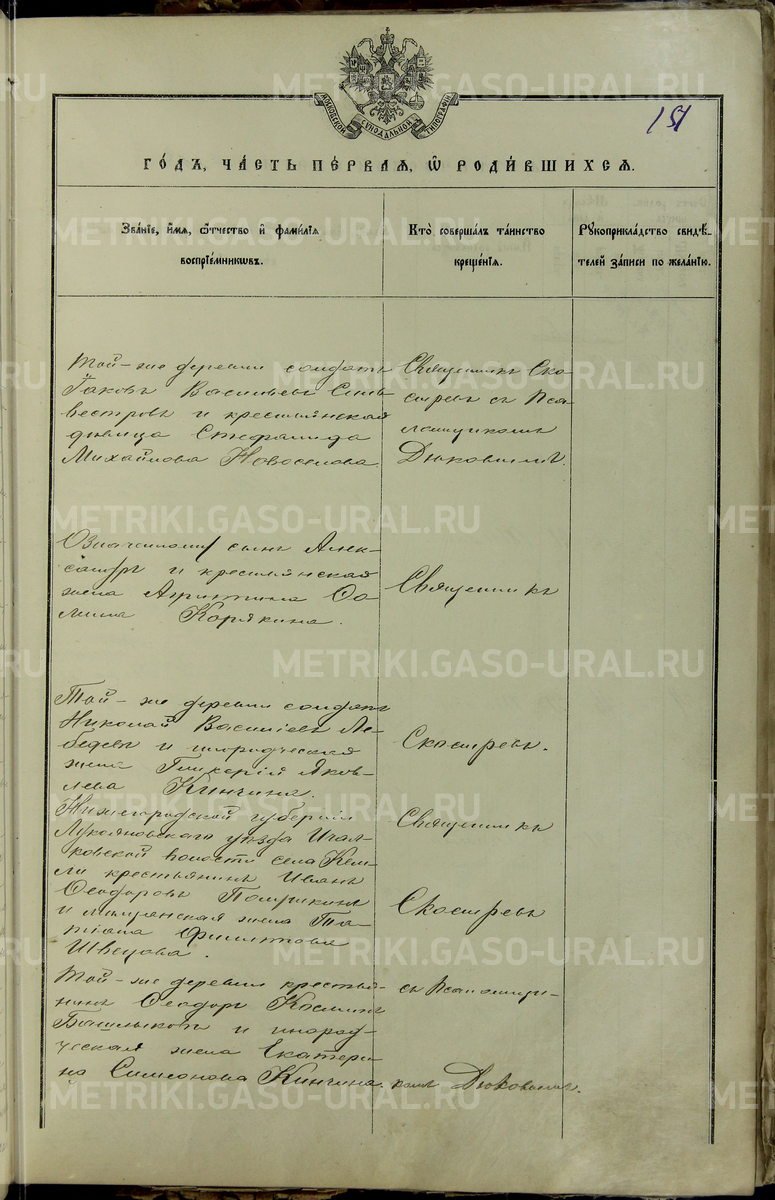 151
МОСКОВСКОЙ СѴНОДАЛЬНОЙ ТИПОГРАФІИ
ГО́ДЪ, ЧА́СТЬ ПЕ́РВАЯ, Ѿ РОДИ́ВШИХСЯ.
Зва́ніе, и́мя, ѻ́тчество и фами́лія
воспріе́мниковъ.
Кто̀ соверша́лъ та́инство
креще́нія.
Рукоприкла́дство свидѣ́-
телей за́писи по жела́нію.
Той-же деревни солдатъ
Іаковъ Васильевъ Силь
вестровъ и крестьянская
дѣвица Стефанида
Михайлова Новоселова
Священникъ Ско
стревъ съ Пса
ломщикомъ
Дюковымъ.
Означеннаго сынъ Алек-
сандръ и крестьянская
жена
Корякина.
Священникъ
Той-же деревни солдатъ
Николай Василіевъ Ле-
бедевъ и
жена Гликерія Яков-
лева Кинчина.
Скостревъ.
Нижегородской губерніи
Лукояновскаго уѣзда
волости села Кем-
ли крестьянинъ Иванъ
Ѳеодоровъ
и мѣщанская жена Та-
тіана Филиппова
Швецова.
Священникъ
Скостревъ
Той-же деревни крестья-
нинъ Ѳеодоръ Косминъ
Башлыковъ и инород-
ческая жена Екатери-
на Симеонова Кинчина.
съ Псаломщи-
комъ Дюковымъ.
METRIKI.GASO-URAL.RU